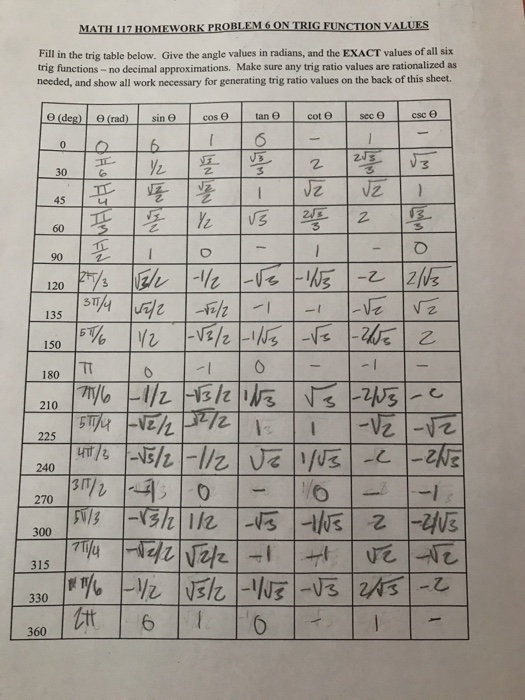 MATH 117 HOMEWORK PROBLEM 6 ON TRIG FUNCTION VALUES
Fill in the trig table below. Give the angle values in radians, and the EXACT values of all six
trig functions – no decimal approximations. Make sure any trig ratio values are rationalized as
needed, and show all work necessary for generating trig ratio values on the back of this sheet.
Θ (deg) Θ (rad) sin Θ cos Θ tan Θ cot Θ sec Θ csc Θ
0 0 0 1 0 – 1 –
30 π/6 1/2 √3/2 √3/3 2 2√3/3 √3
45 π/4 √2/2 √2/2 1 √2 √2 1
60 π/3 √3/2 1/2 √3 2√3/3 2 √3/3
90 π/2 1 0 – 1 – 0
120 2π/3 √3/2 -1/2 -√3 -1/√3 -2 2/√3
135 3π/4 √2/2 -√2/2 -1 -1 -√2 √2
150 5π/6 1/2 -√3/2 -1/√3 -√3 -2/√3 2
180 π 0 -1 0 – -1 –
210 7π/6 -1/2 -√3/2 1/√3 √3 -2/√3 -2
225 5π/4 -√2/2 -√2/2 1 1 -√2 -√2
240 4π/3 -√3/2 -1/2 √3 1/√3 -2 -2/√3
270 3π/2 0 – 0 – -1
300 5π/3 -√3/2 1/2 -√3 -1/√3 2 -2/√3
315 7π/4 -√2/2 √2/2 -1 √2 -√2
330 π/6 -1/2 √3/2 -1/√3 -√3 2/√3 -2
360 2π 0 1 0 – 1 –